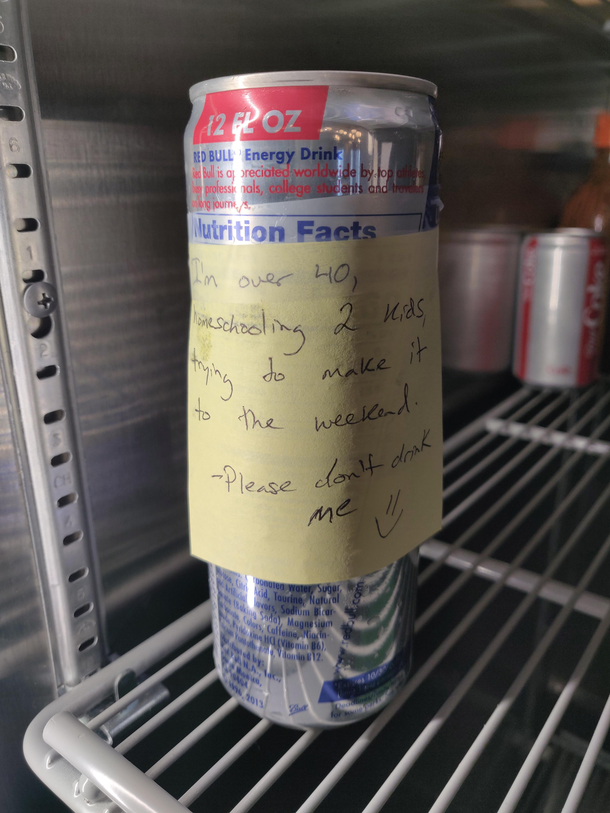 12 FL OZ
RED BULL® Energy Drink
Red Bull is appreciated worldwide by top athletes
busy professionals, college students and travelers
on long journeys.
Nutrition Facts
I'm over 40,
homeschooling 2 kids,
trying to make it
to the weekend.
-Please don't drink
me
Carbonated Water, Sugar,
Acid, Taurine, Natural
Flavors, Sodium Bicar-
Soda), Magnesium
Colors, Caffeine, Niacin
HCl (Vitamin B6),
Vitamin B12.
Inc.,
2013
Coke